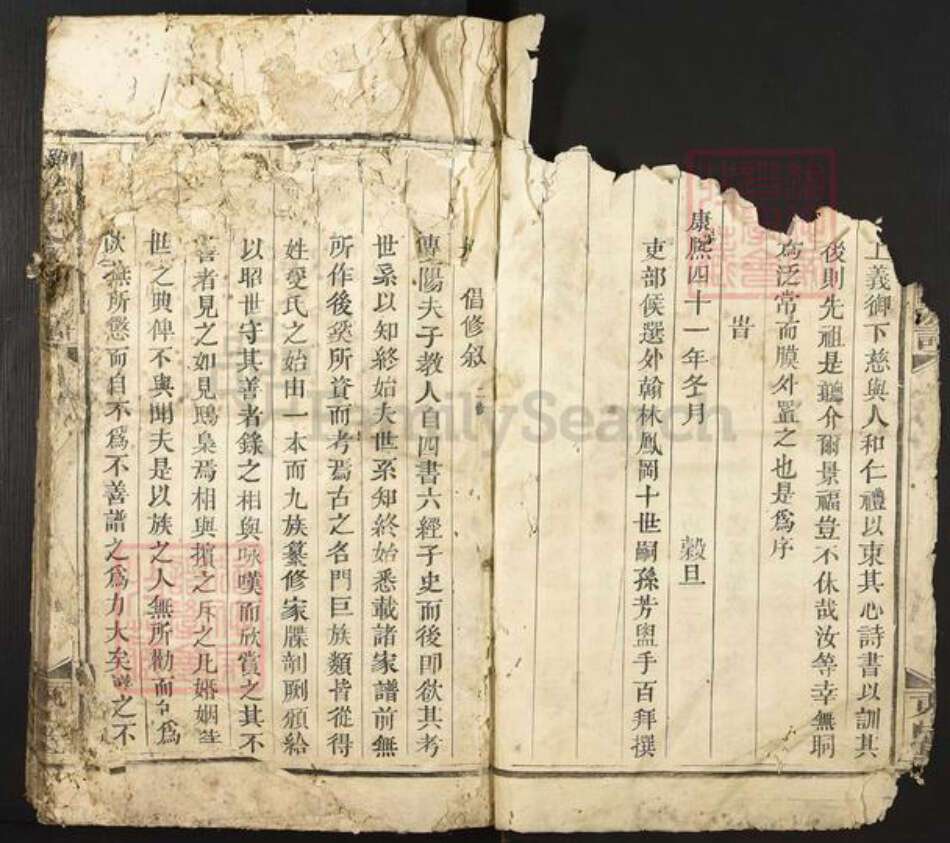 上義御下慈與人和仁禮以東其心詩書以訓其
後則先祖是聽介爾景福豈不休哉汝等幸無眮
為泛常而膜外置之也是爲序
旹
康熙四十一年冬月 穀旦
吏部候選外翰林鳳岡十世嗣孫芳盥手百拜撰
倡修叙 二修
傳陽夫子教人自四書六經子史而後即欲其考
世系以知終始夫世系知終始悉載諸家譜前無
所作後奚所資而考焉古之名門巨族類皆從得
姓受氏之始由一本而九族纂修家牒剞劂頒給
以昭世守其善者錄之相與咏嘆而欣賞之其不
善者見之如見鴟梟焉相與擯之斥之凡婚姻
世之典俾不與聞夫是以族之人無所勸而自為
無所懲而自不爲不善譜之爲力大矣 之不
FamilySearch